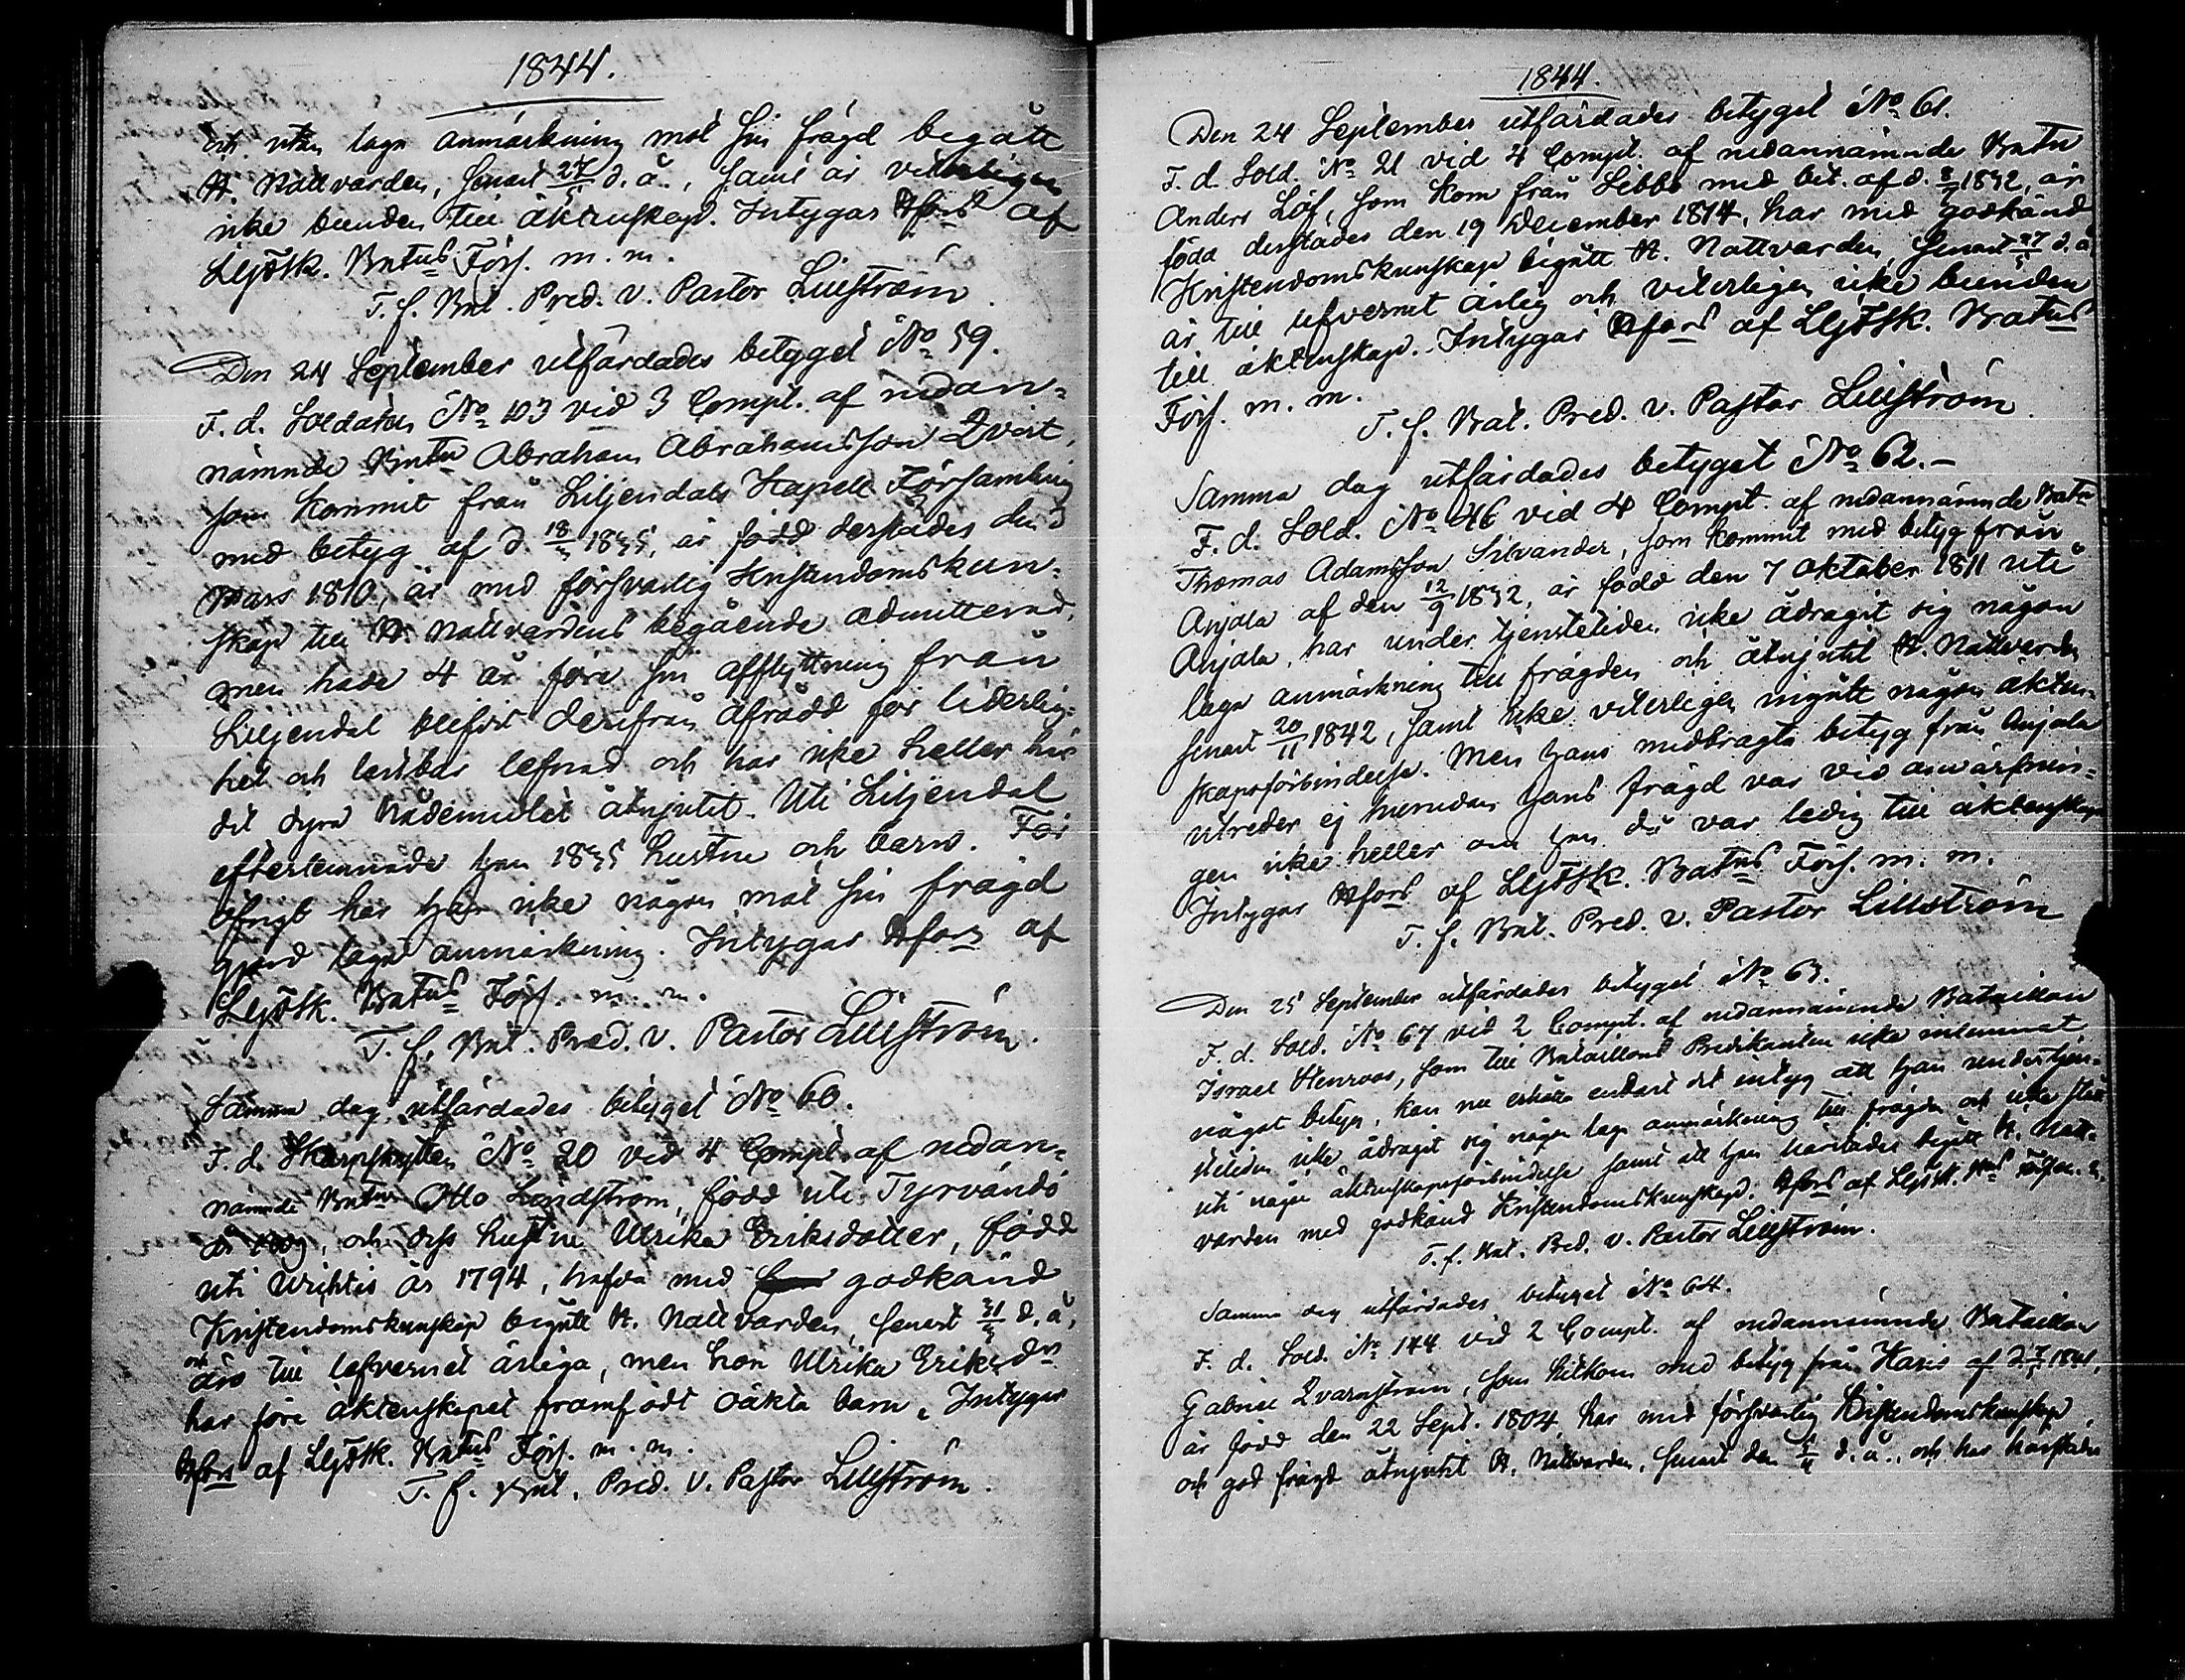 1844.
och utan laga anmärkning mot sin frägd begått
H. Nattvarden, senast 27/5 d. å., samt är veterligen
icke bunden till äktenskap. Intygas Hfors af
LljfSk. Batns Förs. m. m.
T. f. Bat. Pred. v. Pastor Lillström.
Den 24 September utfärdades betyget No 59.
F. d. Soldaten No 103 vid 3 Compt. af nedan-
nämnde Batn Abraham Abrahamsson Qvist,
som kommit från Liljendals Kapell Församling
med betyg af d. 18/ 1835, är född derstädes den 3
Mars 1810, är med försvarlig Kristendomskun-
skap till H. Nattvardens begående admitterad,
men hade 4 år före sin afflyttning från
Liljendal blifvit derifrån afrådd för liderlig-
het och lastbar lefnad och har icke heller här
det dyra Nådemedlet åtnjutit. Uti Liljendal
efterlemnade han 1835 hustru och barn. För
öfrigt har han icke någon mot sin frägd
gjord laga anmärkning. Intygas Hfors af
LljfSk. Batns Förs. m. m.
T. f. Bat. Pred. v. Pastor Lillström.
Samma dag utfärdades betyget No 60.
F. d. Skarpskytten No 20 vid 4 Compt. af nedan-
nämnde Batn Otto Landström, född uti Tyrvändö
år, och dess hustru Ulrika Eriksdotter, född
uti Wichtis år 1794, hafva med godkänd
Kristendomskunskap begått H. Nattvarden, senast 31/3 d. å.,
och
äro till lefvernet ärliga, men hon Ulrika Eriksdr
har före äktenskapet framfödt oäkta barn, Intygas
Hfors af LljfSk. Batns Förs. m. m.
T. f. Bat. Pred. v. Pastor Lillström.
1844.
Den 24 September utfärdades betyget No 61.
F. d. Sold. No 21 vid 4 Compt. af nedannämnde Batn
Anders Löf, som kom från Sebbo med bet. af d. 1832, är
född derstädes den 19 December 1814, har med godkänd
Kristendomskunskap begått H. Nattvarden, senast 27/5 d. å,
är till lefvernet ärlig och veterligen icke bunden
till äktenskap. Intygas Hfors af LljfSk. Batns
Förs. m. m.
T. f. Bat. Pred. v. Pastor Lillström.
Samma dag utfärdades betyget No 62.-
F. d. Sold. No 46 vid 4 Compt. af nedannämnde Batn
Thomas Adamsson Silvander, som kommit med betyg från
Anjala af den 12/9 1832, är född den 7 Oktober 1811 uti
Anjala, har under tjenstetiden icke ådragit sig någon
laga anmärkning till frägden och åtnjutit H. Nattvarden
senast 20/11 1842, samt icke veterligen ingått någon äkten-
skapsförbindelse. Men hans medbragta betyg från Anjala
utreder ej hurudan hans frägd var vid anvärfnin-
gen icke heller om han då var ledig till äktenskap
Intygas Hfors af LljfSk. Batns Förs. m. m.
T. f. Bat. Pred. v. Pastor Lillström
Den 25 September utfärdades betyget No 63.
F. d. Sold. No 67 vid 2 Compt. af nedannämnde Bataillon
Israel Stenroos, som till Bataillons Predikanten icke inlemnat
något betyg, kan nu erhålla endast det intyg att han under tjen-
stetiden icke ådragit sig någon laga anmärkning till frägden och icke städt
uti någon äktenskapsförbindelse samt att han härstädes begått H. Natt-
varden med godkänd Kristendomskunskap. Hfors af LljfSk. Bns Förs. m. m.
T. f. Bat. Pred. v. Pastor Lillström.
Samma dag utfärdades betyget No 64.
F. d. Sold. No 144 vid 2 Compt. af nedannämnde Bataillon
Gabriel Qvarnström, som hitkom med betyg från Karis af d. 1841,
är född den 22 Sept. 1804, har med försvarlig Kristendomskunskap
och god frägd åtnjutit H. Nattvarden, senast den d. å., och har härstädes